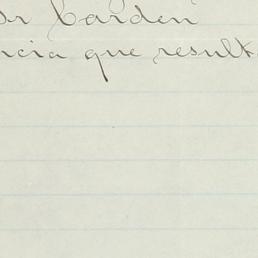 Sr Carden
ncia que result